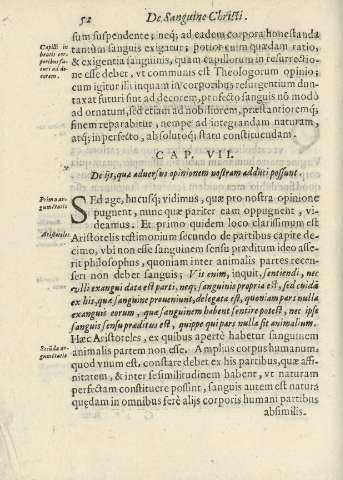 52 De Sanguine Christi.
sum suspendente; neq; ad eadem corpora honestanda
Capilli in
beatis cor-
poribus fu-
turi ad de-
corem.
tantùm sanguis exigatur; potior enim quædam ratio,
& exigentia sanguinis, quàm capillorum in resurrectio-
ne esse debet, vt communis est Theologorum opinio;
cum igitur illi inquam in corporibus resurgentium dun-
taxat futuri sint ad decorem, profecto sanguis nō modò
ad ornatum, sed etiam ad nobiliorem, præstantioremq;
finem reparabitur, nempe ad integrandam naturam,
atq; in perfecto, absolutoq; statu constituendam.
CAP. VII.
De ijs, quæ aduersus opinionem nostram adduci possunt.
Primo ar-
gumētatio
SEd age, hucusq; vidimus, quæ pro nostra opinione
pugnent, nunc quæ pariter eam oppugnent, vi-
deamus. Et primo quidem loco clarissimum est
Aristoteles
Aristotelis testimonium secundo de partibus capite de-
cimo, vbi non esse sanguinem sensu præditum ideo asse-
rit philosophus, quoniam inter animalis partes recen-
seri non debet sanguis; Vis enim, inquit, sentiendi, nec
vlli exangui data est parti, neq; sanguinis propria est, sed cuidā
ex his, quæ sanguine proueniunt, delegata est, quoniam pars nulla
exanguis eorum, quæ sanguinem habent sentire potest, nec ipse
sanguis sensu præditus est, quippe qui pars nulla sit animalium.
Hæc Aristoteles, ex quibus apertè habetur sanguinem
Secūda ar-
gumētatio
animalis partem non esse. Amplius corpus humanum,
quod vnum est, constare debet ex his partibus, quæ affi-
nitatem, & inter se similitudinem habent, vt naturam
perfectam constituere possint, sanguis autem est natura
quędam in omnibus ferè alijs corporis humani partibus
absimilis.